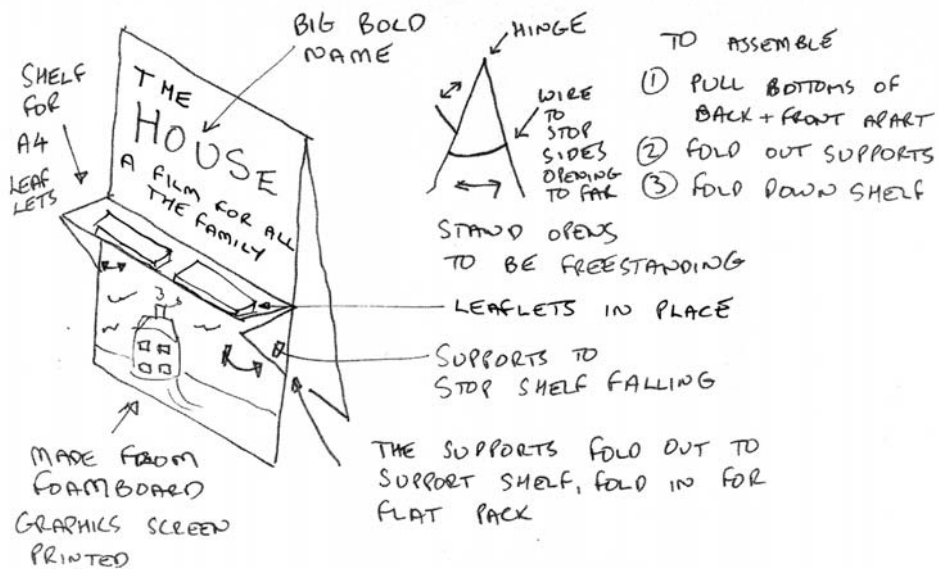 BIG BOLD
NAME
SHELF
FOR
A4
LEAF
LETS
THE
HOUSE
A FILM FOR ALL
THE FAMILY
HINGE
WIRE
TO
STOP
SIDES
OPENING
TO FAR
TO ASSEMBLE
① PULL BOTTOMS OF
BACK + FRONT APART
② FOLD OUT SUPPORTS
③ FOLD DOWN SHELF
STAND OPENS
TO BE FREESTANDING
LEAFLETS IN PLACE
SUPPORTS TO
STOP SHELF FALLING
THE SUPPORTS FOLD OUT TO
SUPPORT SHELF, FOLD IN FOR
FLAT PACK
MADE FROM
FOAMBOARD
GRAPHICS SCREEN
PRINTED